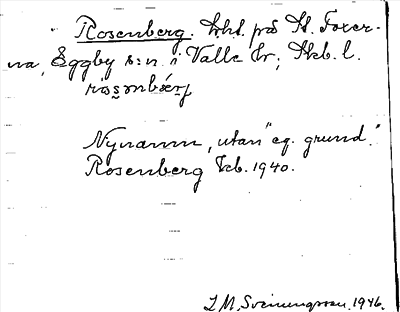 Rosenberg. lht. på St. Foxer-
na, Eggby s:n i Valle hd; Skb. l.
Nynamn, utan "eg. grund."
Rosenberg kb. 1940.
I. M. Sveningsson. 1946.